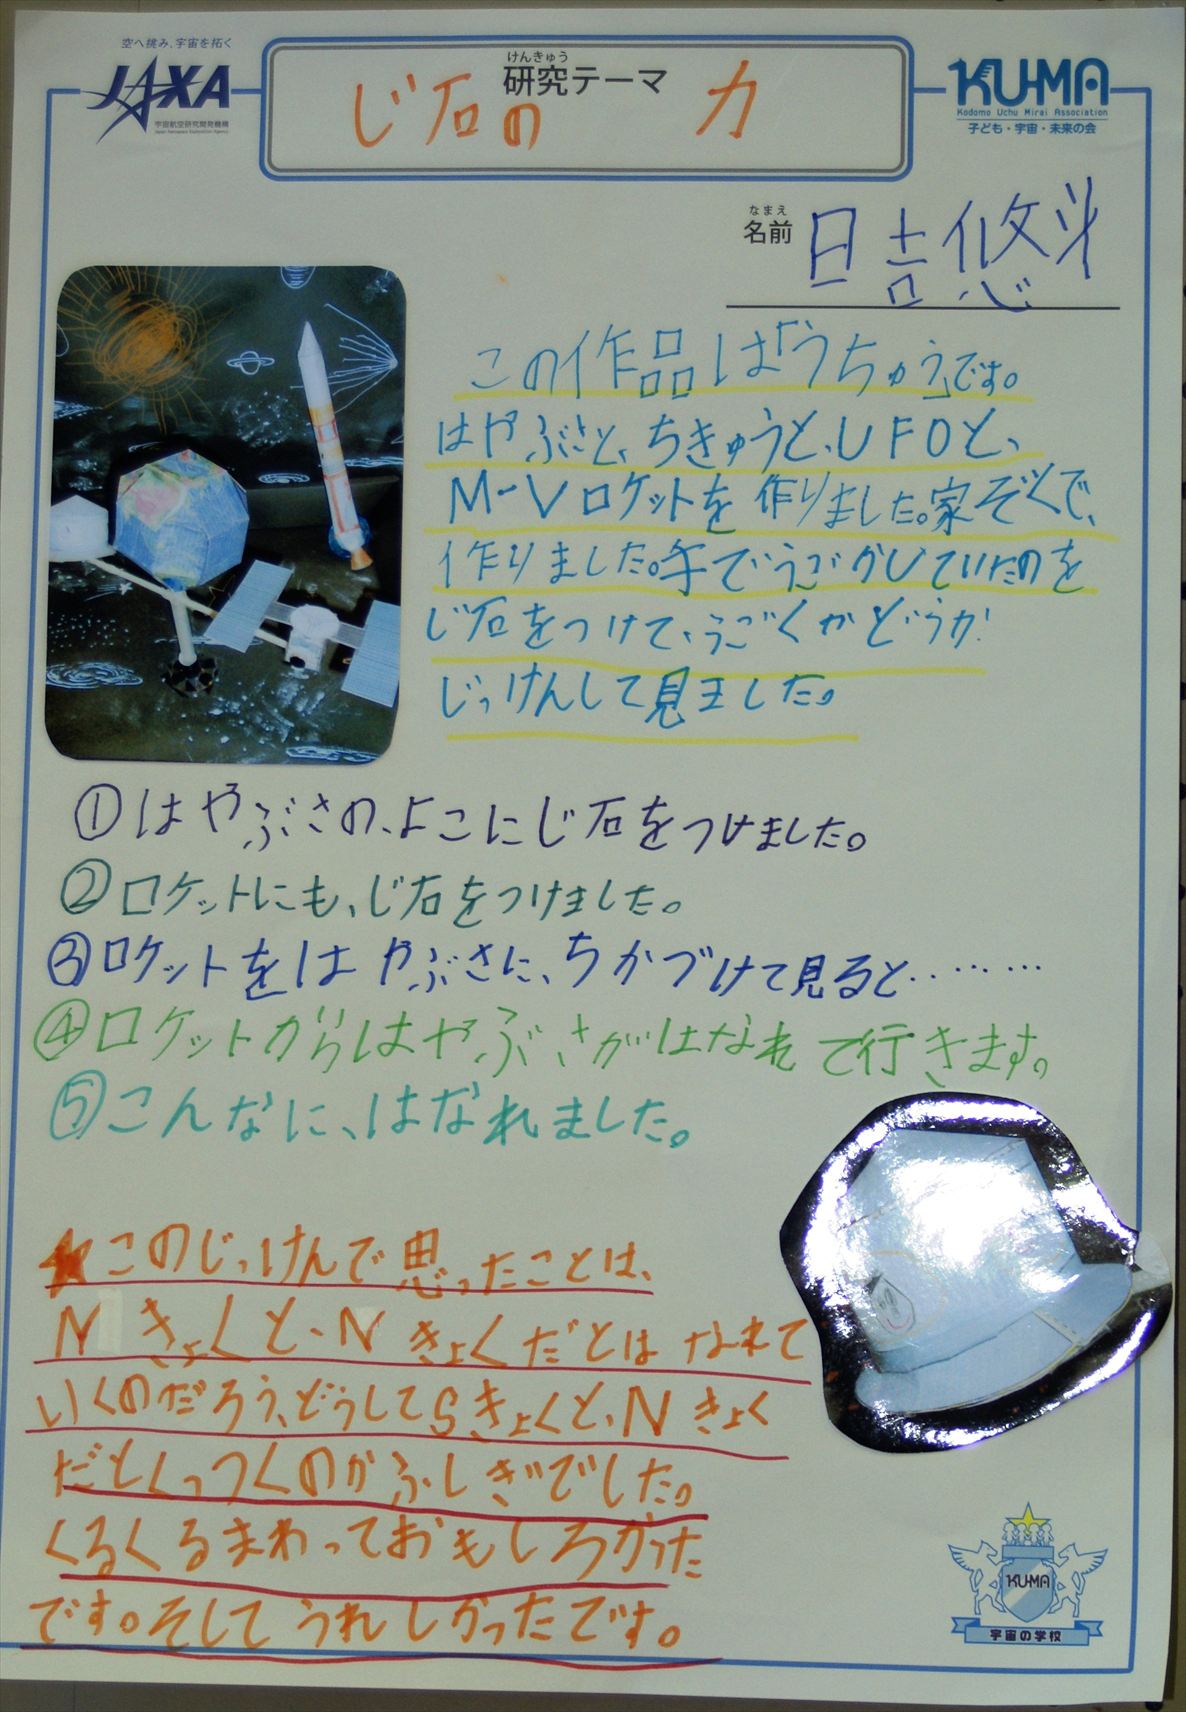 空へ挑み、宇宙を拓く
JAXA
宇宙航空研究開発機構
Japan Aerospace Exploration Agency
けんきゅう
研究テーマ
じ石の 力
KU-MA
Kodomo Uchu Mirai Association
子ども・宇宙・未来の会
なまえ
名前 日吉悠斗
この作品は「うちゅう」です。
はやぶさと、ちきゅうと、UFOと、
M-Vロケットを作りました。家ぞくで、
作りました。手でうごかしていたのを
じ石をつけて、うごくかどうか
じっけんして見ました。
①はやぶさの、よこにじ石をつけました。
②ロケットにも、じ石をつけました。
③ロケットをはやぶさに、ちかづけて見ると………
④ロケットからはやぶさがはなれて行きます。
⑤こんなに、はなれました。
★このじっけんで思ったことは、
Nきょくと、Nきょくだとはなれて
いくのだろう、どうしてSきょくと、Nきょく
だとくっつくのかふしぎでした。
くるくるまわっておもしろかった
です。そしてうれしかったです。
KU-MA
宇宙の学校